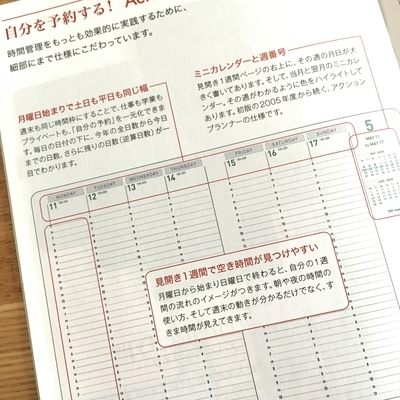 自分を予約する!
時間管理をもっとも効果的に実践するために、
細部にまで仕様にこだわっています。
月曜日始まりで土日も平日も同じ幅
週末も同じ時間枠にすることで、仕事も学業も
プライベートも、「自分の予約」を一元化できま
す。毎日の日付の下に、今年の全日数から今日
までの日数、さらに残りの日数(逆算日数)が一
目でわかります。
ミニカレンダーと週番号
見開き1週間ページの右上に、その週の月日が大
きく書いてあります。そして、当月と翌月のミニカレ
ンダー。その週がわかるように色をハイライトして
あります。初版の2005年度から続く、アクション
プランナーの仕様です。
MONDAY TUESDAY WEDNESDAY THURSDAY FRIDAY SATURDAY SUNDAY
11 12 13 14 15 16 17
5
MAY 11
to MAY 17
見開き1週間で空き時間が見つけやすい
月曜日から始まり日曜日で終わると、自分の1週
間の流れのイメージがつきます。朝や夜の時間の
使い方、そして週末の動きが分かるだけでなく、す
きま時間が見えてきます。